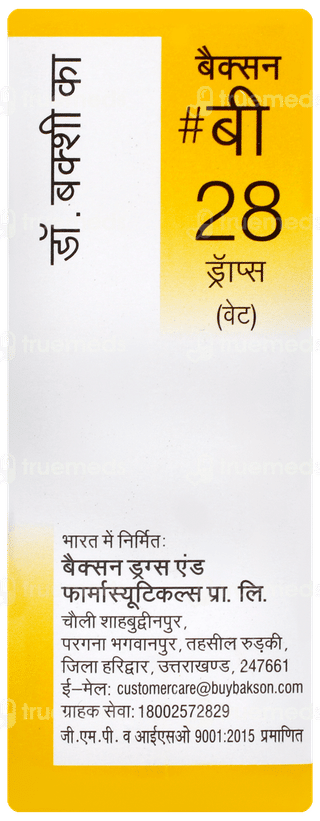 डॉ. बक्शी का
बैक्सन
#बी
28
ड्रॉप्स
(वेट)
भारत में निर्मित:
बैक्सन ड्रग्स एंड
फार्मास्यूटिकल्स प्रा. लि.
चौली शाहबुद्वीनपुर,
परगना भगवानपुर, तहसील रुड़की,
जिला हरिद्वार, उत्तराखण्ड, 247661
ई–मेल: customercare@buybakson.com
ग्राहक सेवा: 18002572829
जी.एम.पी. व आईएसओ 9001:2015 प्रमाणित
truemeds